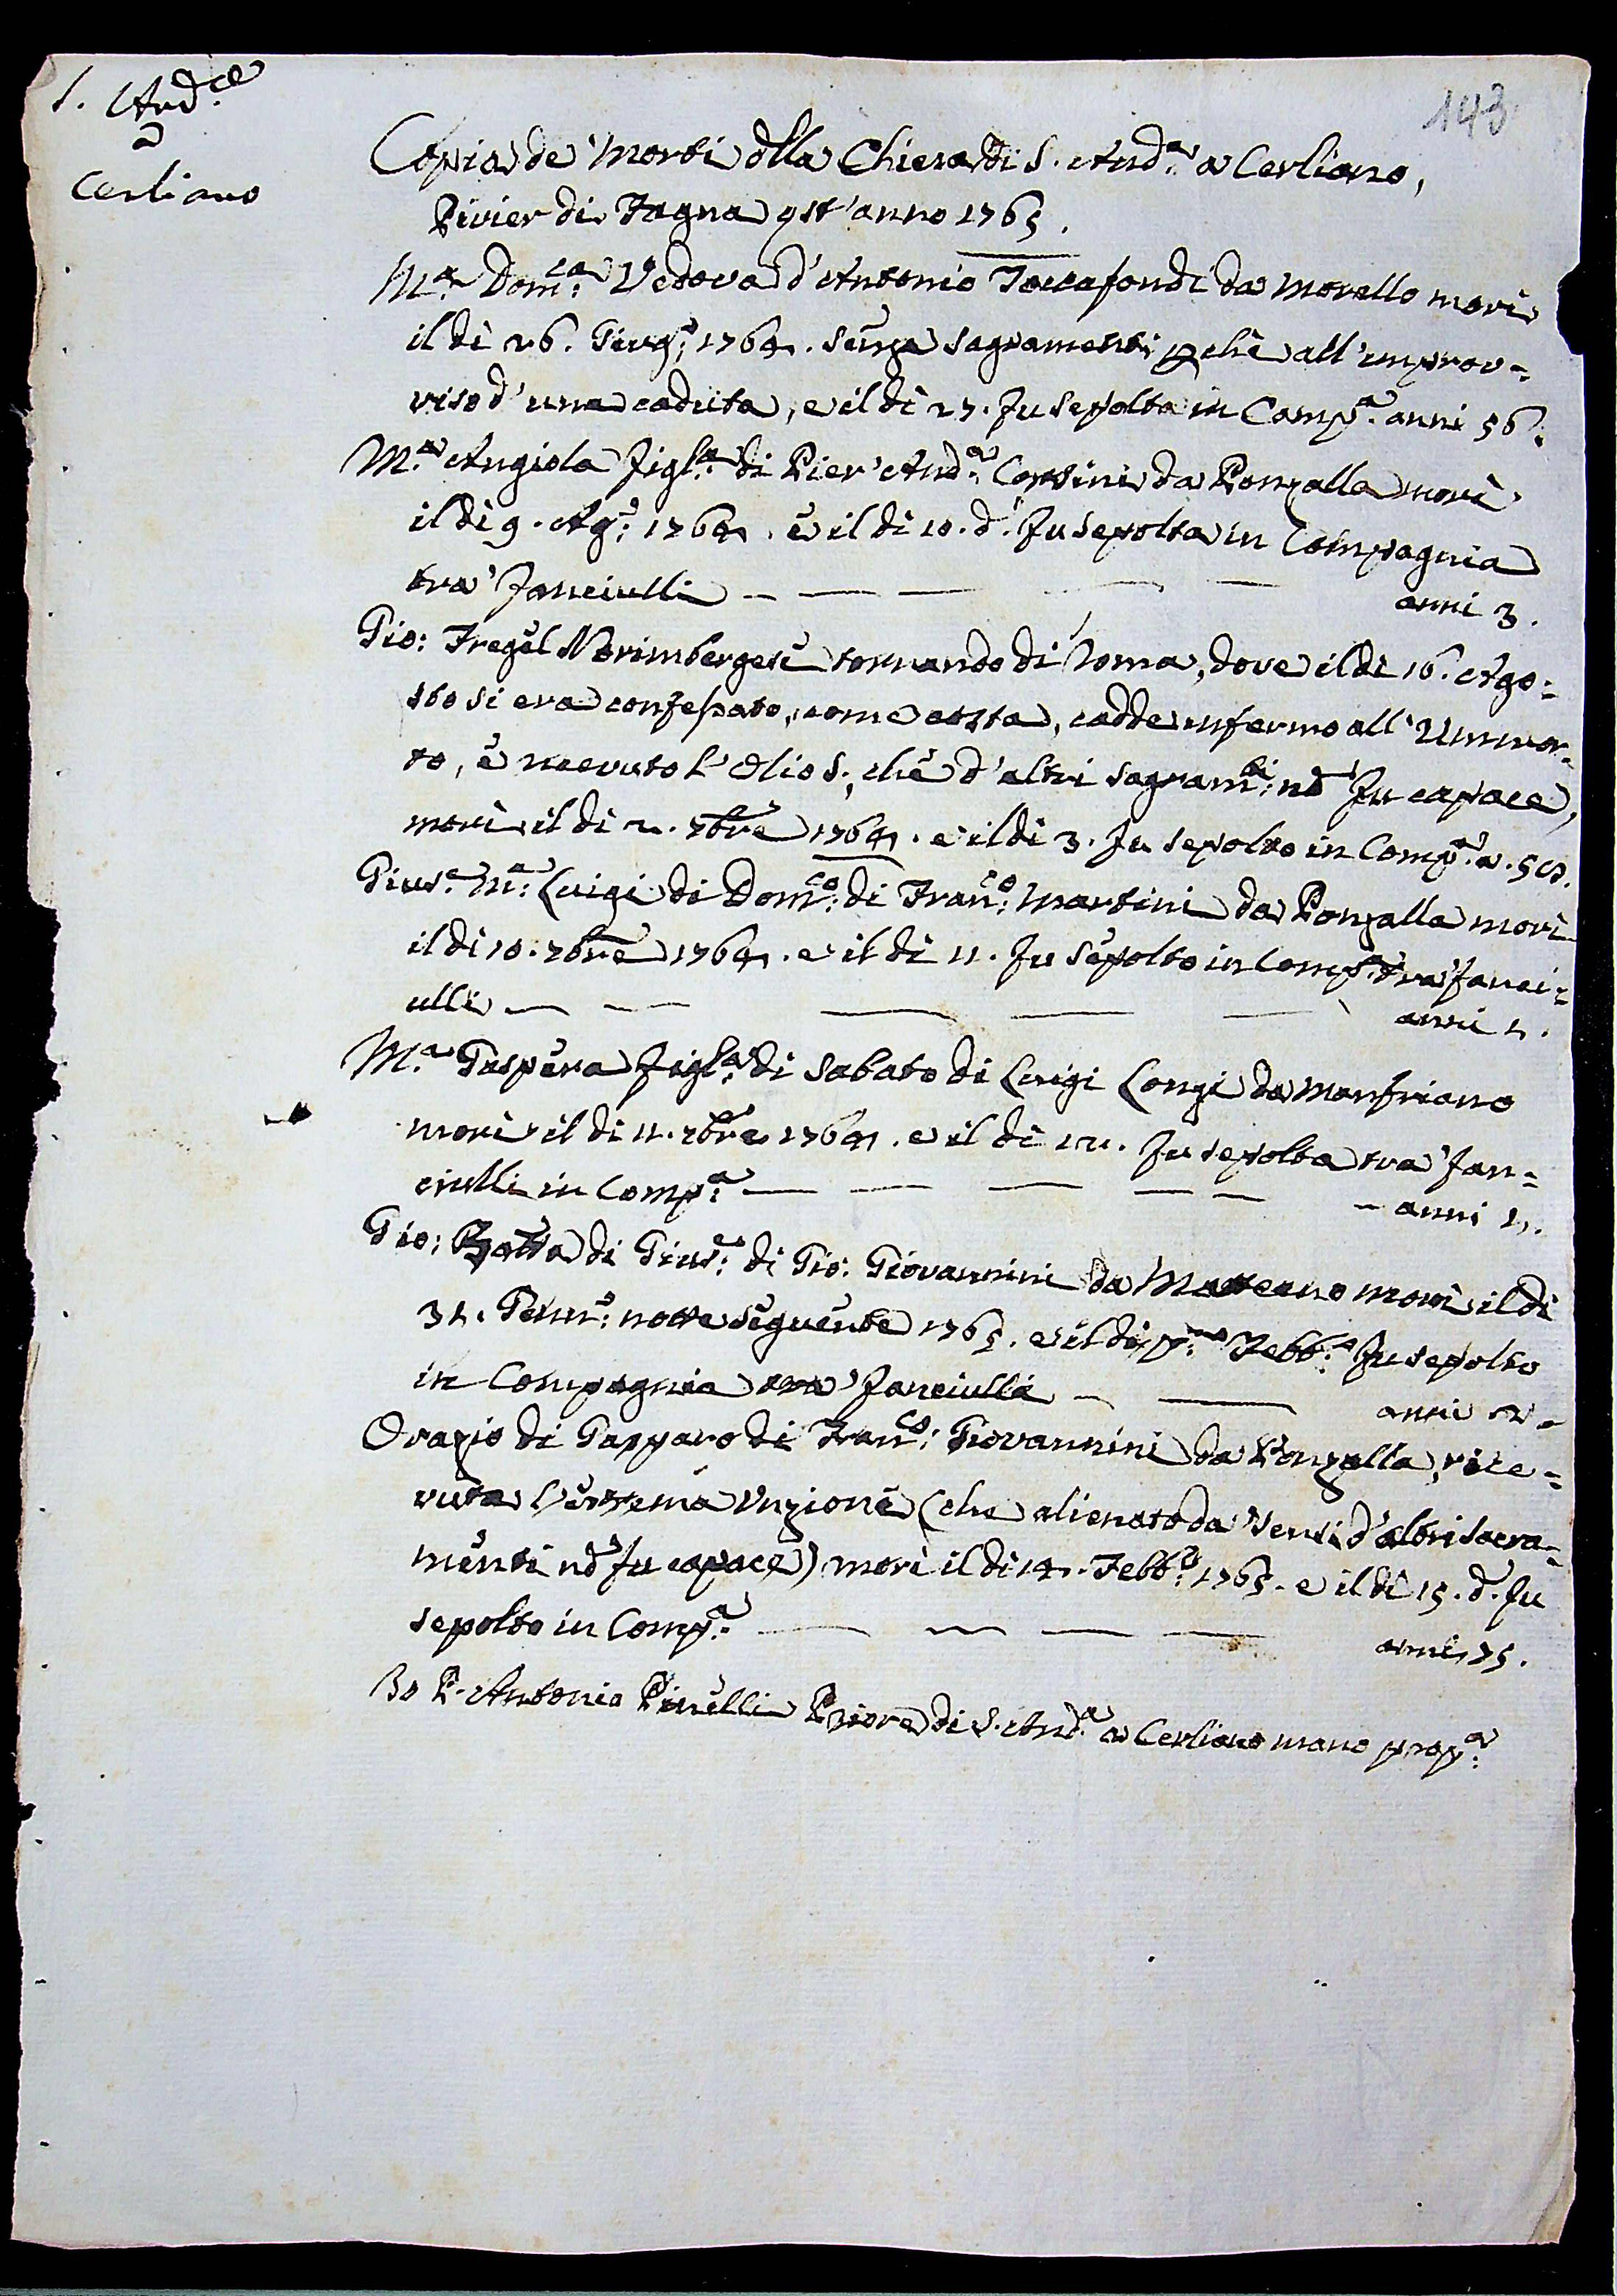 S. And.ca
a
Cerliano
143
Copia de' Morti dlla Chiesa di S. And.a a Cerliano,
Pivier di Fagna qst'anno 1765.
M.a Dom.ca Vedova d'Antonio Toccafondi da Morello morì
il dì 26. Giug.o 1764. senza sagramenti pchè all'improv=
viso d'una caduta, e il dì 27. fu sepolta in Comp.a anni 56.
M.a Angiola figl.a di Pier'And.a Corsini da Ronzalla morì
il dì 9. Ag.o 1764. e il dì 10. d.o fu sepolta in Compagnia
tra' fanciulli — — — — — anni 3.
Gio: Fregel Norimbergese tornando di Roma, dove il dì 16. Ago=
sto si era confessato, come costa, cadde infermo all'
to, e ricevuto l'Olio S., chè d'altri sagram.ti nō fu capace,
morì il dì 2. 7bre 1764. e il dì 3. fu sepolto in Comp.a a. 50.
Gius.e M.a Luigi di Dom.co di Fran.co Martini da Ronzalla morì
il dì 10. 7bre 1764. e il dì 11. fu sepolto in Comp.a tra' fanci=
ulli — — — — — anni 4.
M.a Gaspera figl.a di Sabato di Luigi Longi da Monfriano
morì il dì 11. 7bre 1764. e il dì 12. fu sepolta tra' fan=
ciulli in Comp.a — — — — — — anni 4.
Gio: Batta di Gius.e di Gio: Giovannini da morì il dì
31. Genn.o notte seguente 1765. e il dì p.mo Febb.o fu sepolto
in Compagnia tra' fanciulli — — anni 2.
Orazio di Gasparo di Fran.co Giovannini da Ronzalla, rice=
vuta l'estrema Unzione (che alienato da' sensi d'altri sacra=
menti nō fu capace) morì il dì 14. Febb.o 1765. e il dì 15. d.o fu
sepolto in Comp.a — — — — anni 75.
Io P. Antonio Pinelli Priore di S. And.a a Cerliano mano prop.a